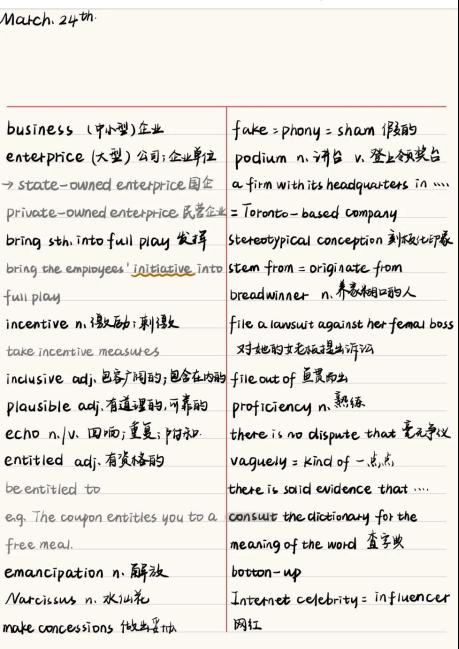 March. 24th.
business (中小型)企业
enterprice (大型)公司;企业单位
→ state-owned enterprice 国企
private-owned enterprice 民营企业
bring sth. into full play 发挥
bring the employees' initiative into
full play
incentive n. 激励;刺激
take incentive measures
inclusive adj. 包容广阔的;包含在内的
plausible adj. 有道理的,可靠的
echo n./v. 回响;重复;附和.
entitled adj. 有资格的
be entitled to
e.g. The coupon entitles you to a
free meal.
emancipation n. 解放
Narcissus n. 水仙花
make concessions 做出妥协
fake = phony = sham 假的
podium n. 讲台 v. 登上领奖台
a firm with its headquarters in ....
= Toronto-based company
stereotypical conception 刻板化印象
stem from = originate from
breadwinner n. 养家糊口的人
file a lawsuit against her femal boss
对她的女老板提出诉讼
file out of 鱼贯而出
proficiency n. 熟练
there is no dispute that 毫无争议
vaguely = kind of 一点点
there is solid evidence that ....
consult the dictionary for the
meaning of the word 查字典
botton-up
Internet celebrity = influencer
网红